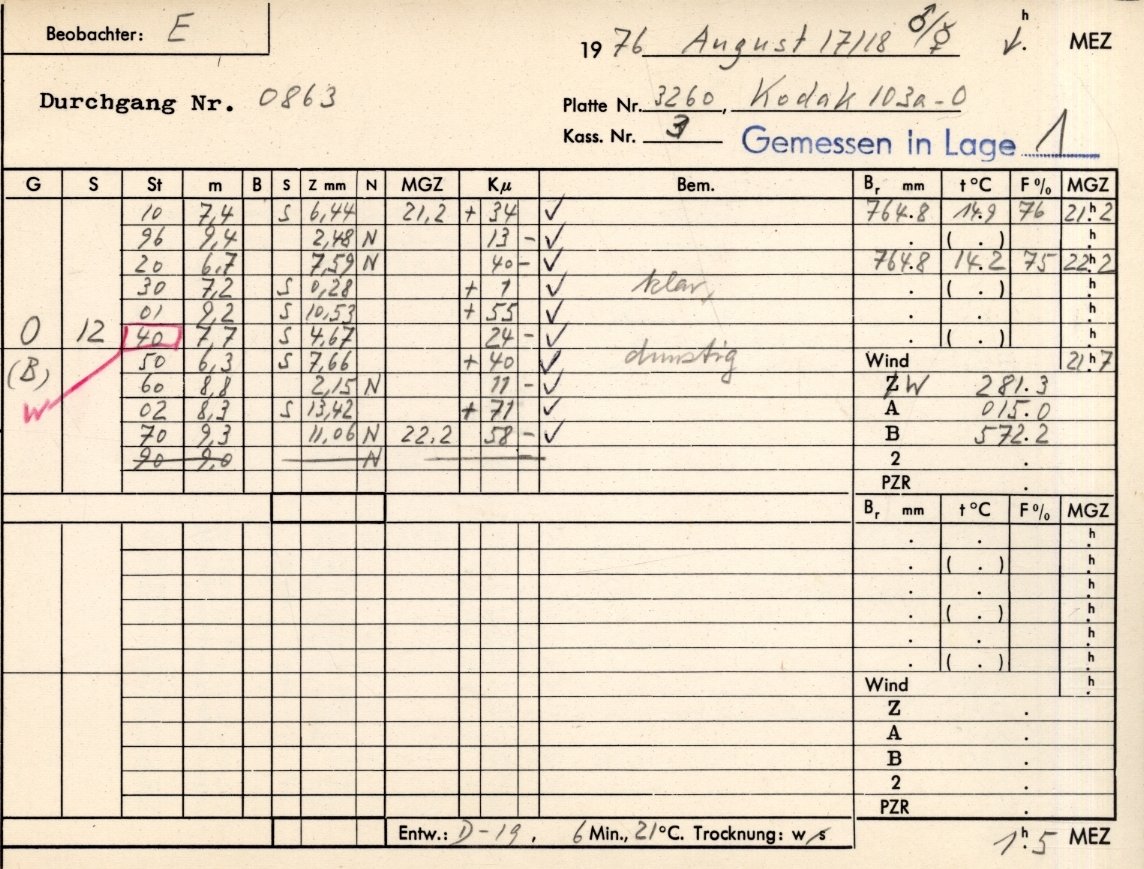 Beobachter: E
1976 August 17/18 ♂/☿ h . MEZ
Durchgang Nr. 0863
Platte Nr. 3260, Kodak 103a-O
Kass. Nr. 3
Gemessen in Lage 1
G S St m B S Z mm N MGZ Kμ Bem. Br mm t °C F % MGZ
10 7,4 S 6,44 21,2 + 34 ✓ 764.8 14.9 76 21h2
96 9,4 2,48 N 13 - ✓ . ( . ) h.
20 6,7 7,59 N 40 - ✓ 764.8 14.2 75 22h2
30 7,2 S 0,28 + 1 ✓ klar, . ( . ) h.
01 9,2 S 10,53 + 55 ✓ . . h.
0 12 40 7,7 S 4,67 24 - ✓ . ( . ) h.
(B) 50 6,3 S 7,66 + 40 ✓ dunstig Wind 21h7
60 8,8 2,15 N 11 - ✓ Z/W 281.3
W 02 8,3 S 13,42 + 71 ✓ A 015.0
70 9,3 11,06 N 22,2 58 - ✓ B 572.2
90 9,0 N 2 .
PZR .
Br mm t °C F % MGZ
. . h.
. ( . ) h.
. . h.
. ( . ) h.
. . h.
. ( . ) h.
Wind h.
Z .
A .
B .
2 .
PZR .
Entw.: D-19, 6 Min., 21°C. Trocknung: w/s
1h.5 MEZ